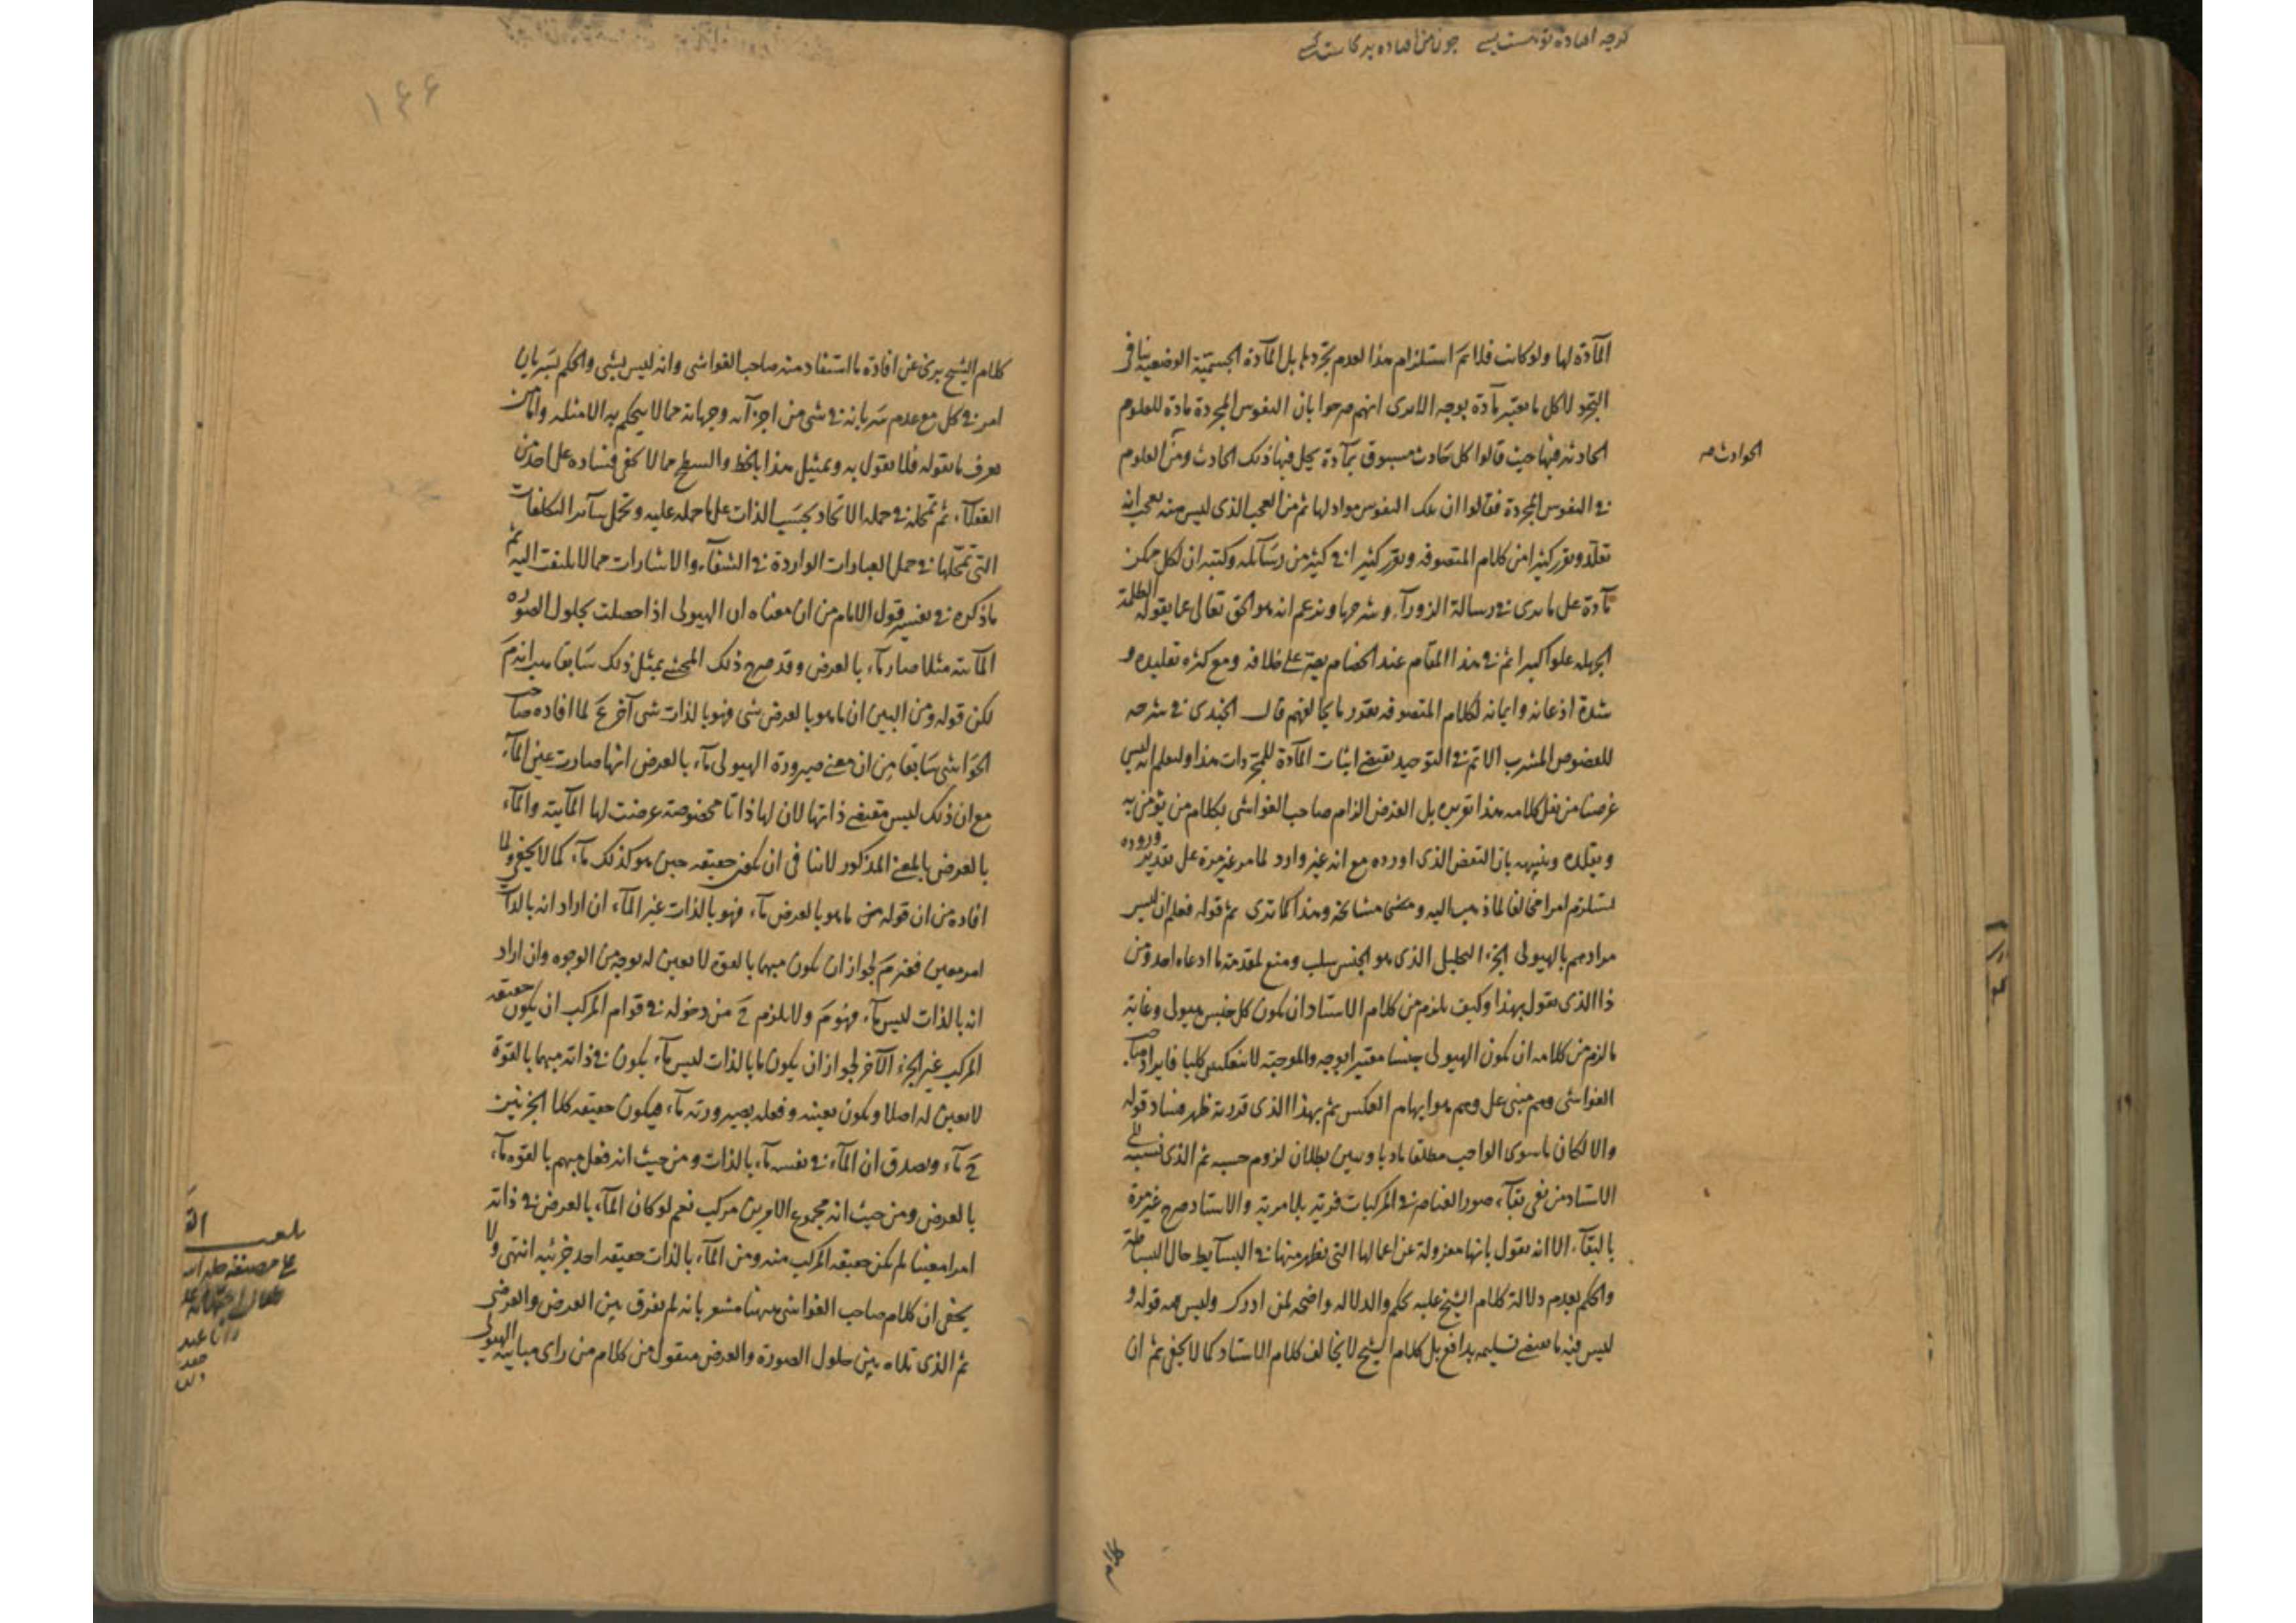 المآدة لها ولو كانت فلا نم استلزام هذا لعدم تجردها بل المآدة الجسمية الوضعية ينافى
التجرد لا كل ما يعتبر مآدة بوجه الا ترى انهم صرحوا بان النفوس المجردة مادة للعلوم
الحادثة فيها حيث قالوا كل حادث مسبوق بمآدة يحل فيها ذلك الحادث ومن العلوم
الحوادث صه
فى النفوس المجردة فقالوا ان تلك النفوس مواد لها ثم من العجب الذى ليس منه بعجب انه
تقلد ويقرر كثيرا من كلام المتصوفه ويقرر كثيرا فى كثير من رسآئله وكتبه ان لكل ممكن
مآدة على ما ترى فى رسالة الزورآء وشرحها ويزعم انه هو الحق تعالى عما يقوله الظلمة
الجهله علوا كبيرا ثم فى هذا المقام عند الخصام يصر على خلافه ومع كثره تقليده و
شدة اذعانه وايمانه لكلام المتصوفه يقور ما يخالفهم قال الجندى فى شرحه
للفصوص المشرب الاتم فى التوحيد يقتضى اثبات المآدة للمجردات هذا وليعلم انه ليس
غرضنا من نقل كلامه هذا تقريره بل الغرض الزام صاحب الغواشى بكلام من يؤمن به
ويقلده وينبهه بان النقض الذى اورده مع انه غير وارد لما مر غير مرة على تقدير وروده
يستلزم امرا مخالفا لما ذهب اليه ومضى مشايخه وهذا كما ترى ثم قوله فعلم ان ليس
مرادهم بالهيولى الجزء التحليلى الذى هو الجنس سلب ومنع لمقدمة ما ادعاه احد ومن
ذا الذى يقول بهذا وكيف يلزم من كلام الاستاد ان يكون كل جنس هيولى وغاية
ما لزم من كلامه ان يكون الهيولى جنسا معتبرا بوجه والموجبة لا تنعكس كليا فايراد صاحب
الغواشى وهم مبنى على وهم هو ايهام العكس ثم بهذا الذى قررنه ظهر فساد قوله
والا لكان ما سوى الواجب مطلقا ماديا وتبين بطلان لزوم حسبه ثم الذى نسبه الى
الاستاد من نفى بقآء صور العناصر فى المركبات فرية بلا مرية والاستاد صرح غير مرة
بالبقآء الا انه يقول بانها معزولة عن اعمالها التى يظهر منها فى البسآيط حال البساطة
والحكم بعدم دلالة كلام الشيخ عليه تحكم والدلاله واضحه لمن ادرك وليس همه قوله و
ليس فيه ما يقتضى تسليمه بدافع بل كلام الشيخ لا يخالف كلام الاستاد كما لا يخفى ثم ان
كلام
١٤٤
كلام الشيخ برىء عن افادة ما استفاد منه صاحب الغواشى وانه ليس بشى والحكم بسريان
امر فى كل مع عدم سريانه فى شى من اجزآئه وجهاته مما لا يحكم به الا مثله وامامن
يعرف ما يقوله فلا يقول به وتمثيل هذا بالخط والسطح مما لا يخفى فساده على احد من
العقلآء ثم تمحله فى حمله الاتحاد بحسب الذات على ما حمله عليه وتحمل سآئر التكلفات
التى تمحلها فى حمل العبارات الواردة فى الشفآء والاشارات مما لا يلتفت اليه ثم
ما ذكره فى تفسير قول الامام من ان معناه ان الهيولى اذا حصلت بحلول الصورة
المآئية مثلا صار مآء بالعرض وقد صرح ذلك المحشى بمثل ذلك سابقا
لكن قوله ومن البين ان ما هو بالعرض شى فهو بالذات شى آخر مح لما افاده صاحب
الحواشى سابقا من ان معنى صيرورة الهيولى مآء بالعرض انها صارت عين المآء
مع ان ذلك ليس مقتضى ذاتها لان لها ذاتا مخصوصة عرضت لها المآئية والمآء
بالعرض بالمعنى المذكور لا ينافى ان يكون حقيقه حين هو كذلك مآء كما لا يخفى ولما
افاده من ان قوله من ما هو بالعرض مآء فهو بالذات غير المآء ان اراد انه بالذات
امر معين فغير مم لجواز ان يكون مبهما بالقوة لا تعين له بوجه من الوجوه وان اراد
انه بالذات ليس مآء فهو مم ولا يلزم ح من دخوله فى قوام المركب ان يكون حقيقه
المركب غير الجزء الآخر لجواز ان يكون ما بالذات ليس مآء يكون فى ذاته مبهما بالقوة
لا تعين له اصلا ويكون تعينه وفعله بصيرورته مآء فيكون حقيقه كلا الجزئين
ح مآء ويصدق ان المآء فى نفسه مآء بالذات ومن حيث انه فعل مبهم بالقوه مآء
بالعرض ومن حيث انه مجموع الامرين مركب نعم لو كان المآء بالعرض فى ذاته
امرا معينا لم يكن حقيقه المركب منه ومن المآء بالذات حقيقه احد جزئيه انتهى ولا
يخفى ان كلام صاحب الغواشى ههنا مشعر بانه لم يفرق بين العرض والعرضى
ثم الذى تلاه بين حلول الصورة والعرض منقول من كلام من راى مباينة الهيولى